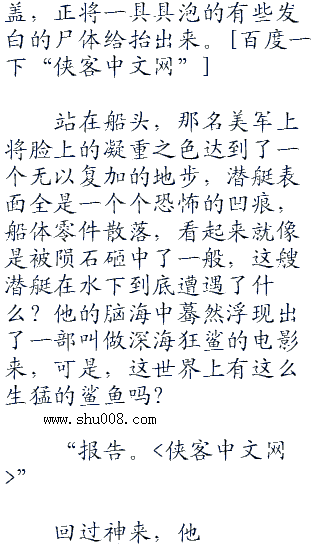 盖，正将一具具泡的有些发
白的尸体给抬出来。[百度一
下“侠客中文网”]
站在船头，那名美军上
将脸上的凝重之色达到了一
个无以复加的地步，潜艇表
面全是一个个恐怖的凹痕，
船体零件散落，看起来就像
是被陨石砸中了一般，这艘
潜艇在水下到底遭遇了什
么？他的脑海中蓦然浮现出
了一部叫做深海狂鲨的电影
来，可是，这世界上有这么
生猛的鲨鱼吗？
www.shu008.com
“报告。<侠客中文网
>”
回过神来，他